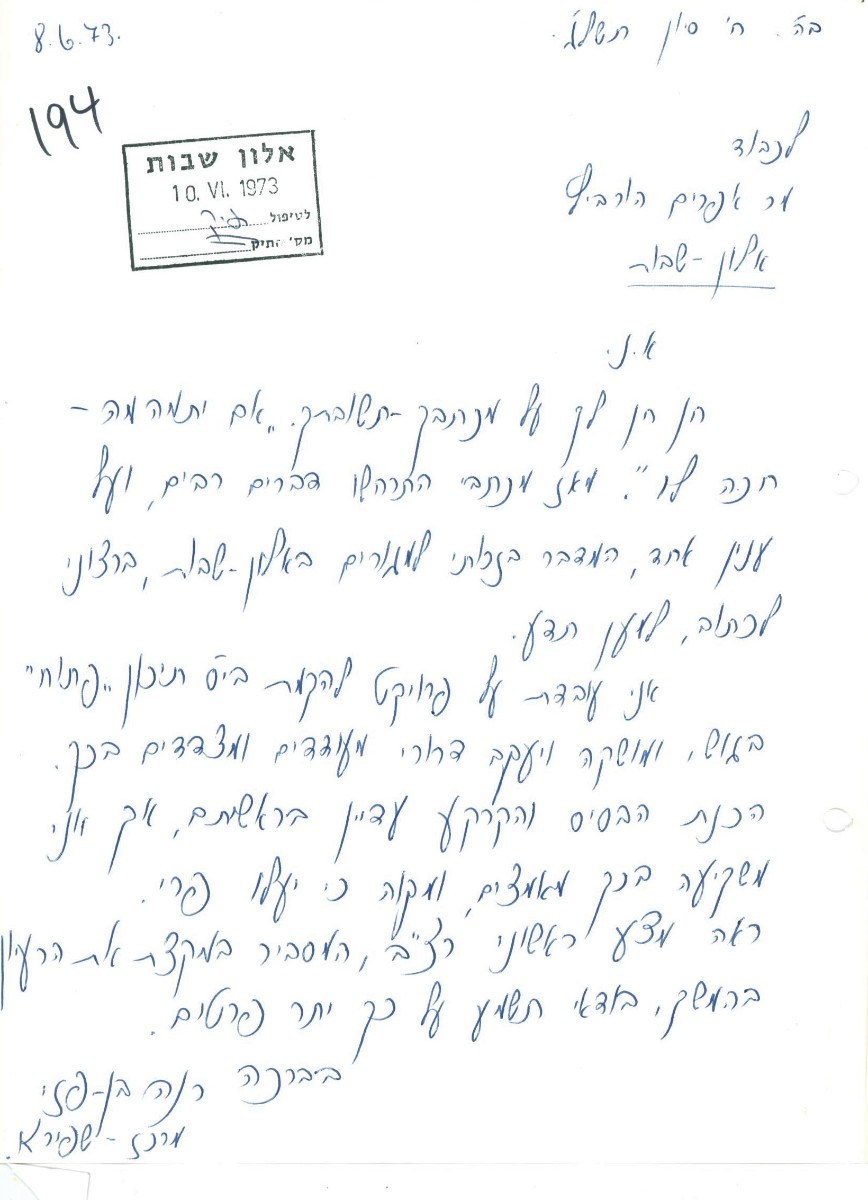 בה. ח' סיון תשל"ג.
8.6.73.
194
אלון שבות
10. VI. 1973
לטיפול
מס' תיק
לכבוד
מר אפרים הורביץ
אלון-שבות
א.נ.
הן הן לך על מכתבך-תשובתך. "אם יתמהמה -
חכה לו". מאז מכתבי התרחשו דברים רבים, ועל
ענין אחד, המדבר בזכותי למגורים באלון-שבות, ברצוני
לכתוב, למען תדע.
אני עובדת על פרויקט להקמת ביס תיכון "פתוח"
בגוש, ומושקה ויעקב דרורי מעודדים ומצדדים בכך.
הכנת הבסיס והקרקע עדיין בראשיתם, אך אני
משקיעה בכך מאמצים, ומקוה כי יעלו פרי.
ראה מצע ראשוני רצ"ב, המסביר במקצת את הרעיון
בהמשך, בודאי תשמע על כך יתר פרטים.
בברכה רנה בן-פזי
מרכז-שפירא.